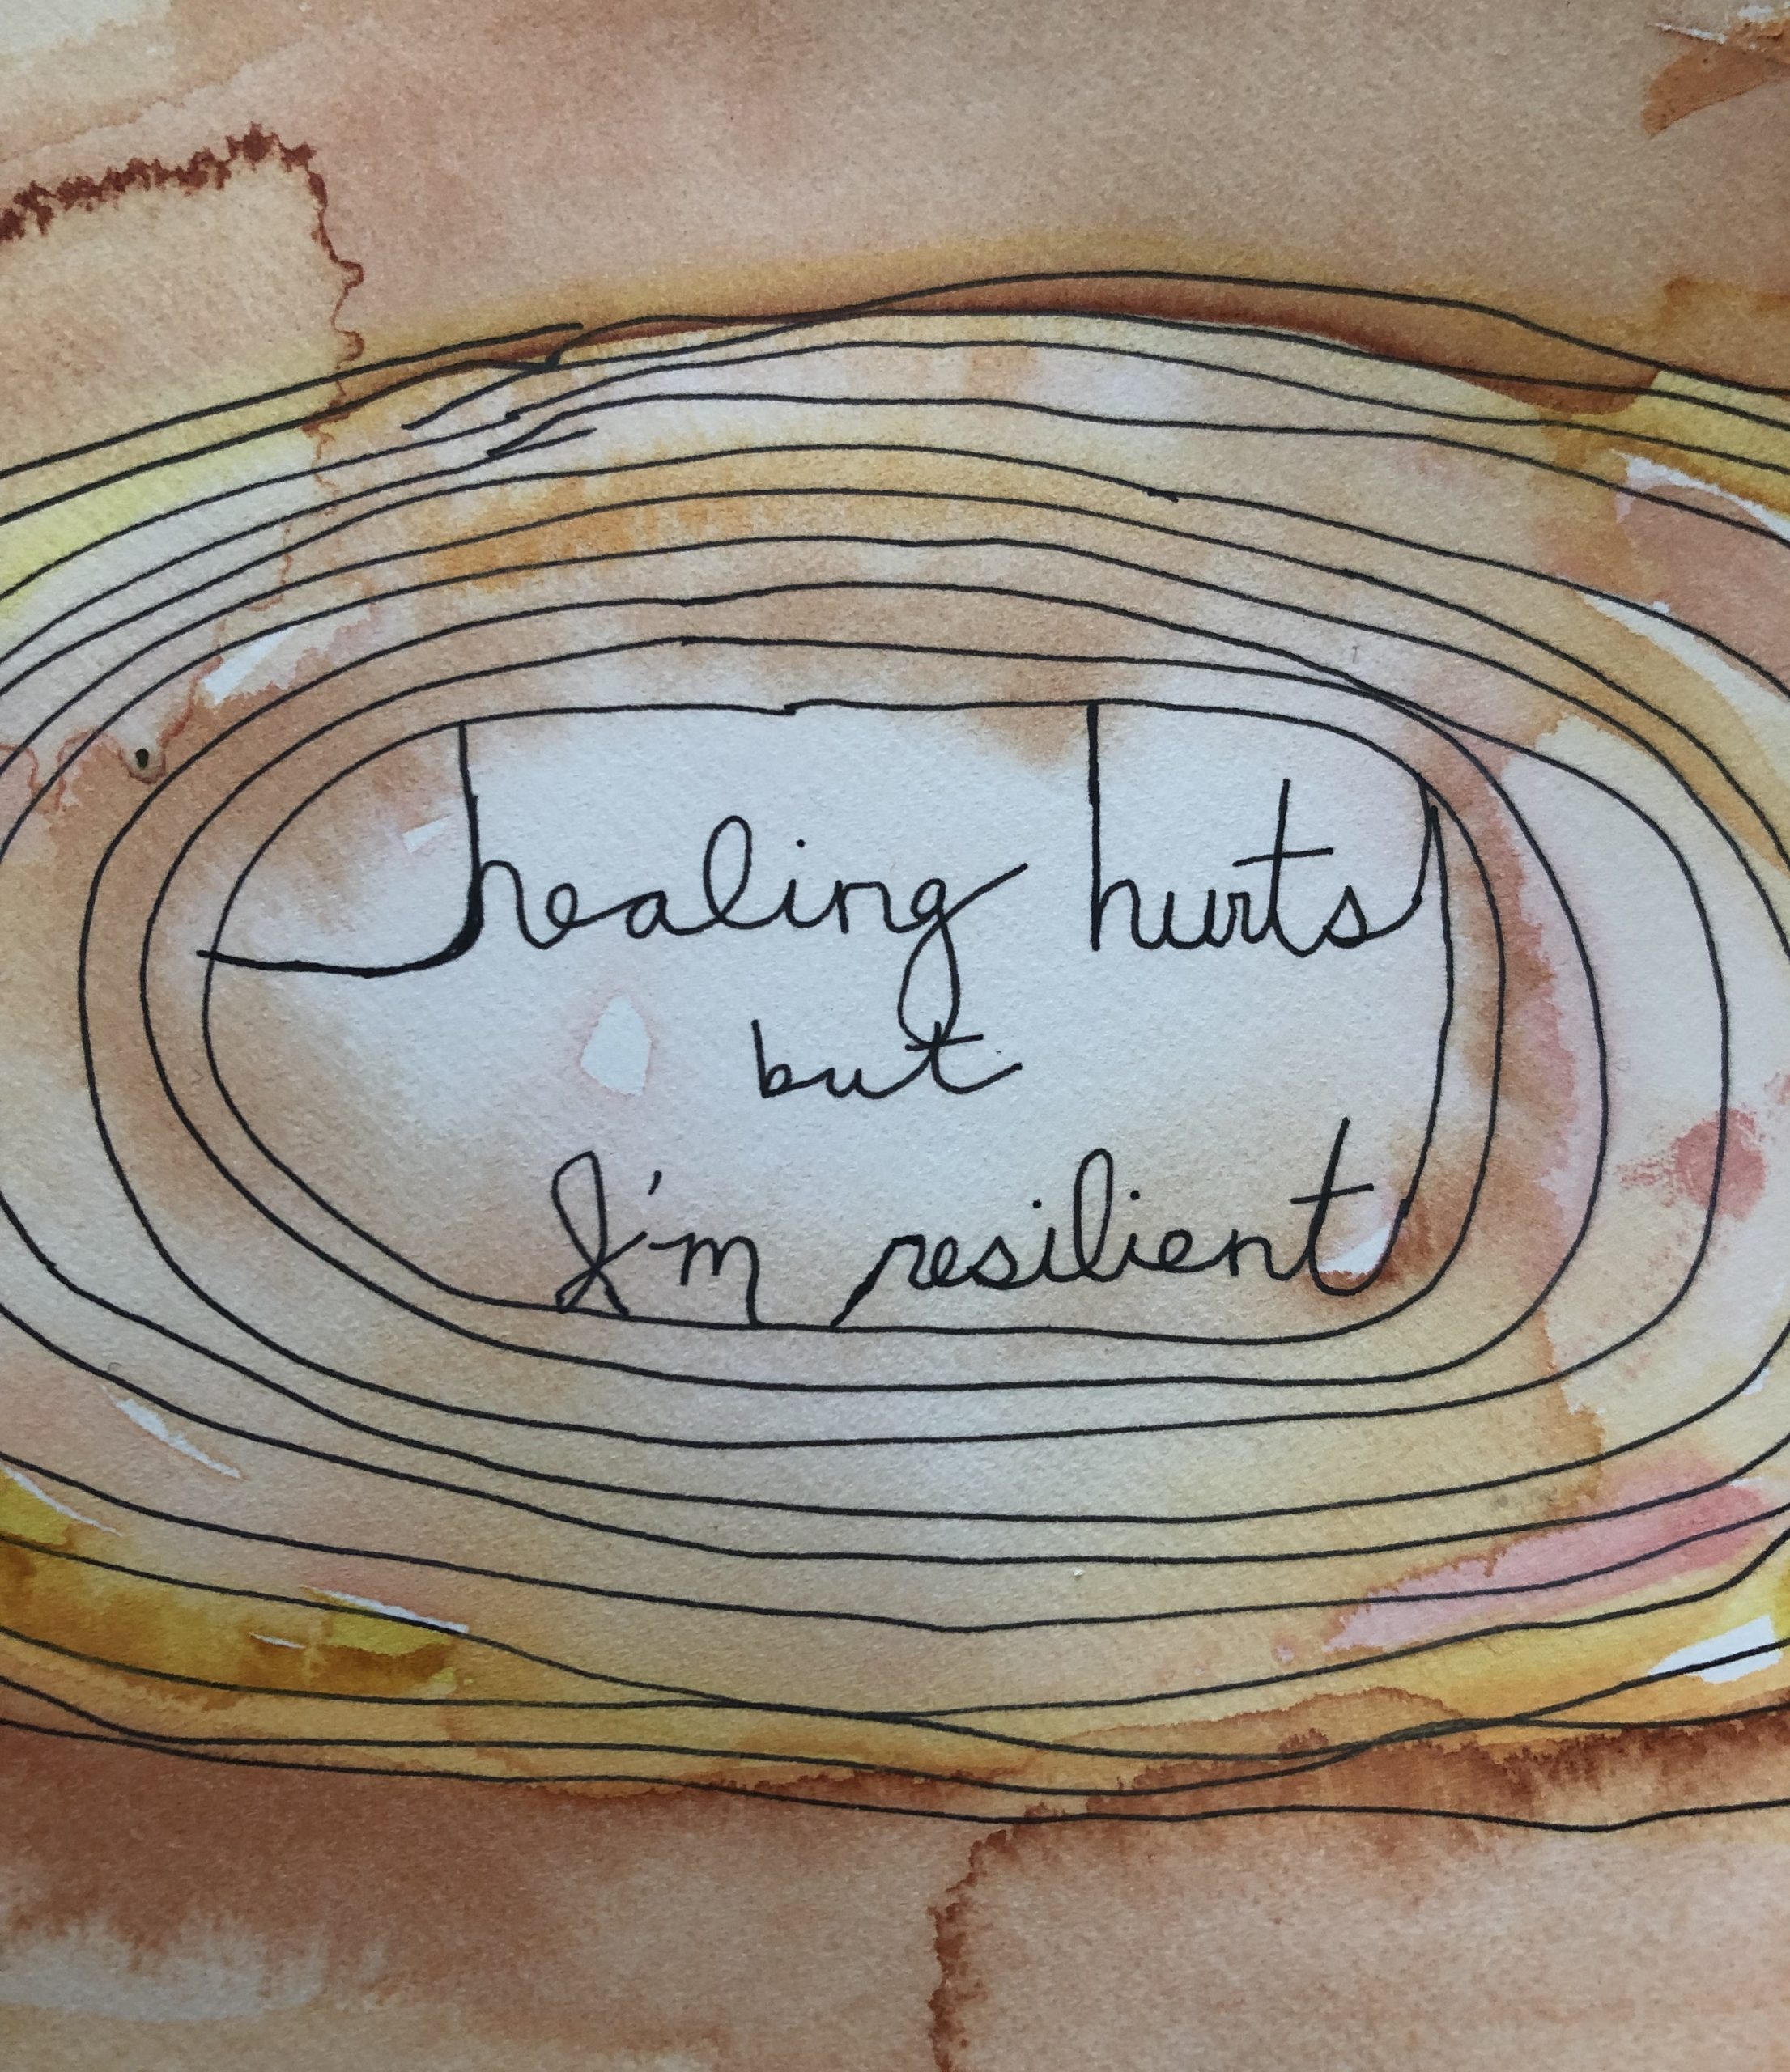 healing hurts
but
I'm resilient